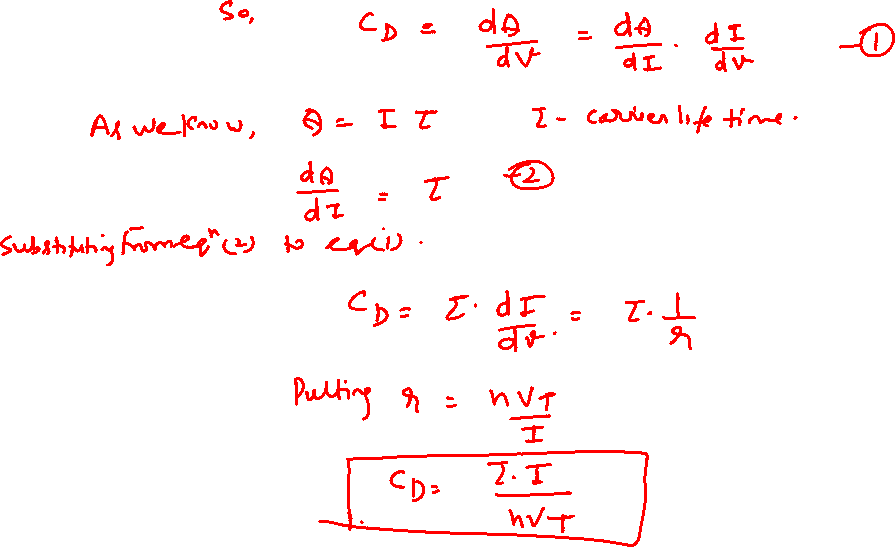 So,
C_D = dQ/dV = dQ/dI · dI/dV —①
As we know, Q = I τ τ - carrier life time.
dQ/dI = τ —②
Substituting from eqⁿ (2) to eq(1).
C_D = τ · dI/dV. = τ · 1/r
Putting r = nVT/I
C_D = τ · I/nVT